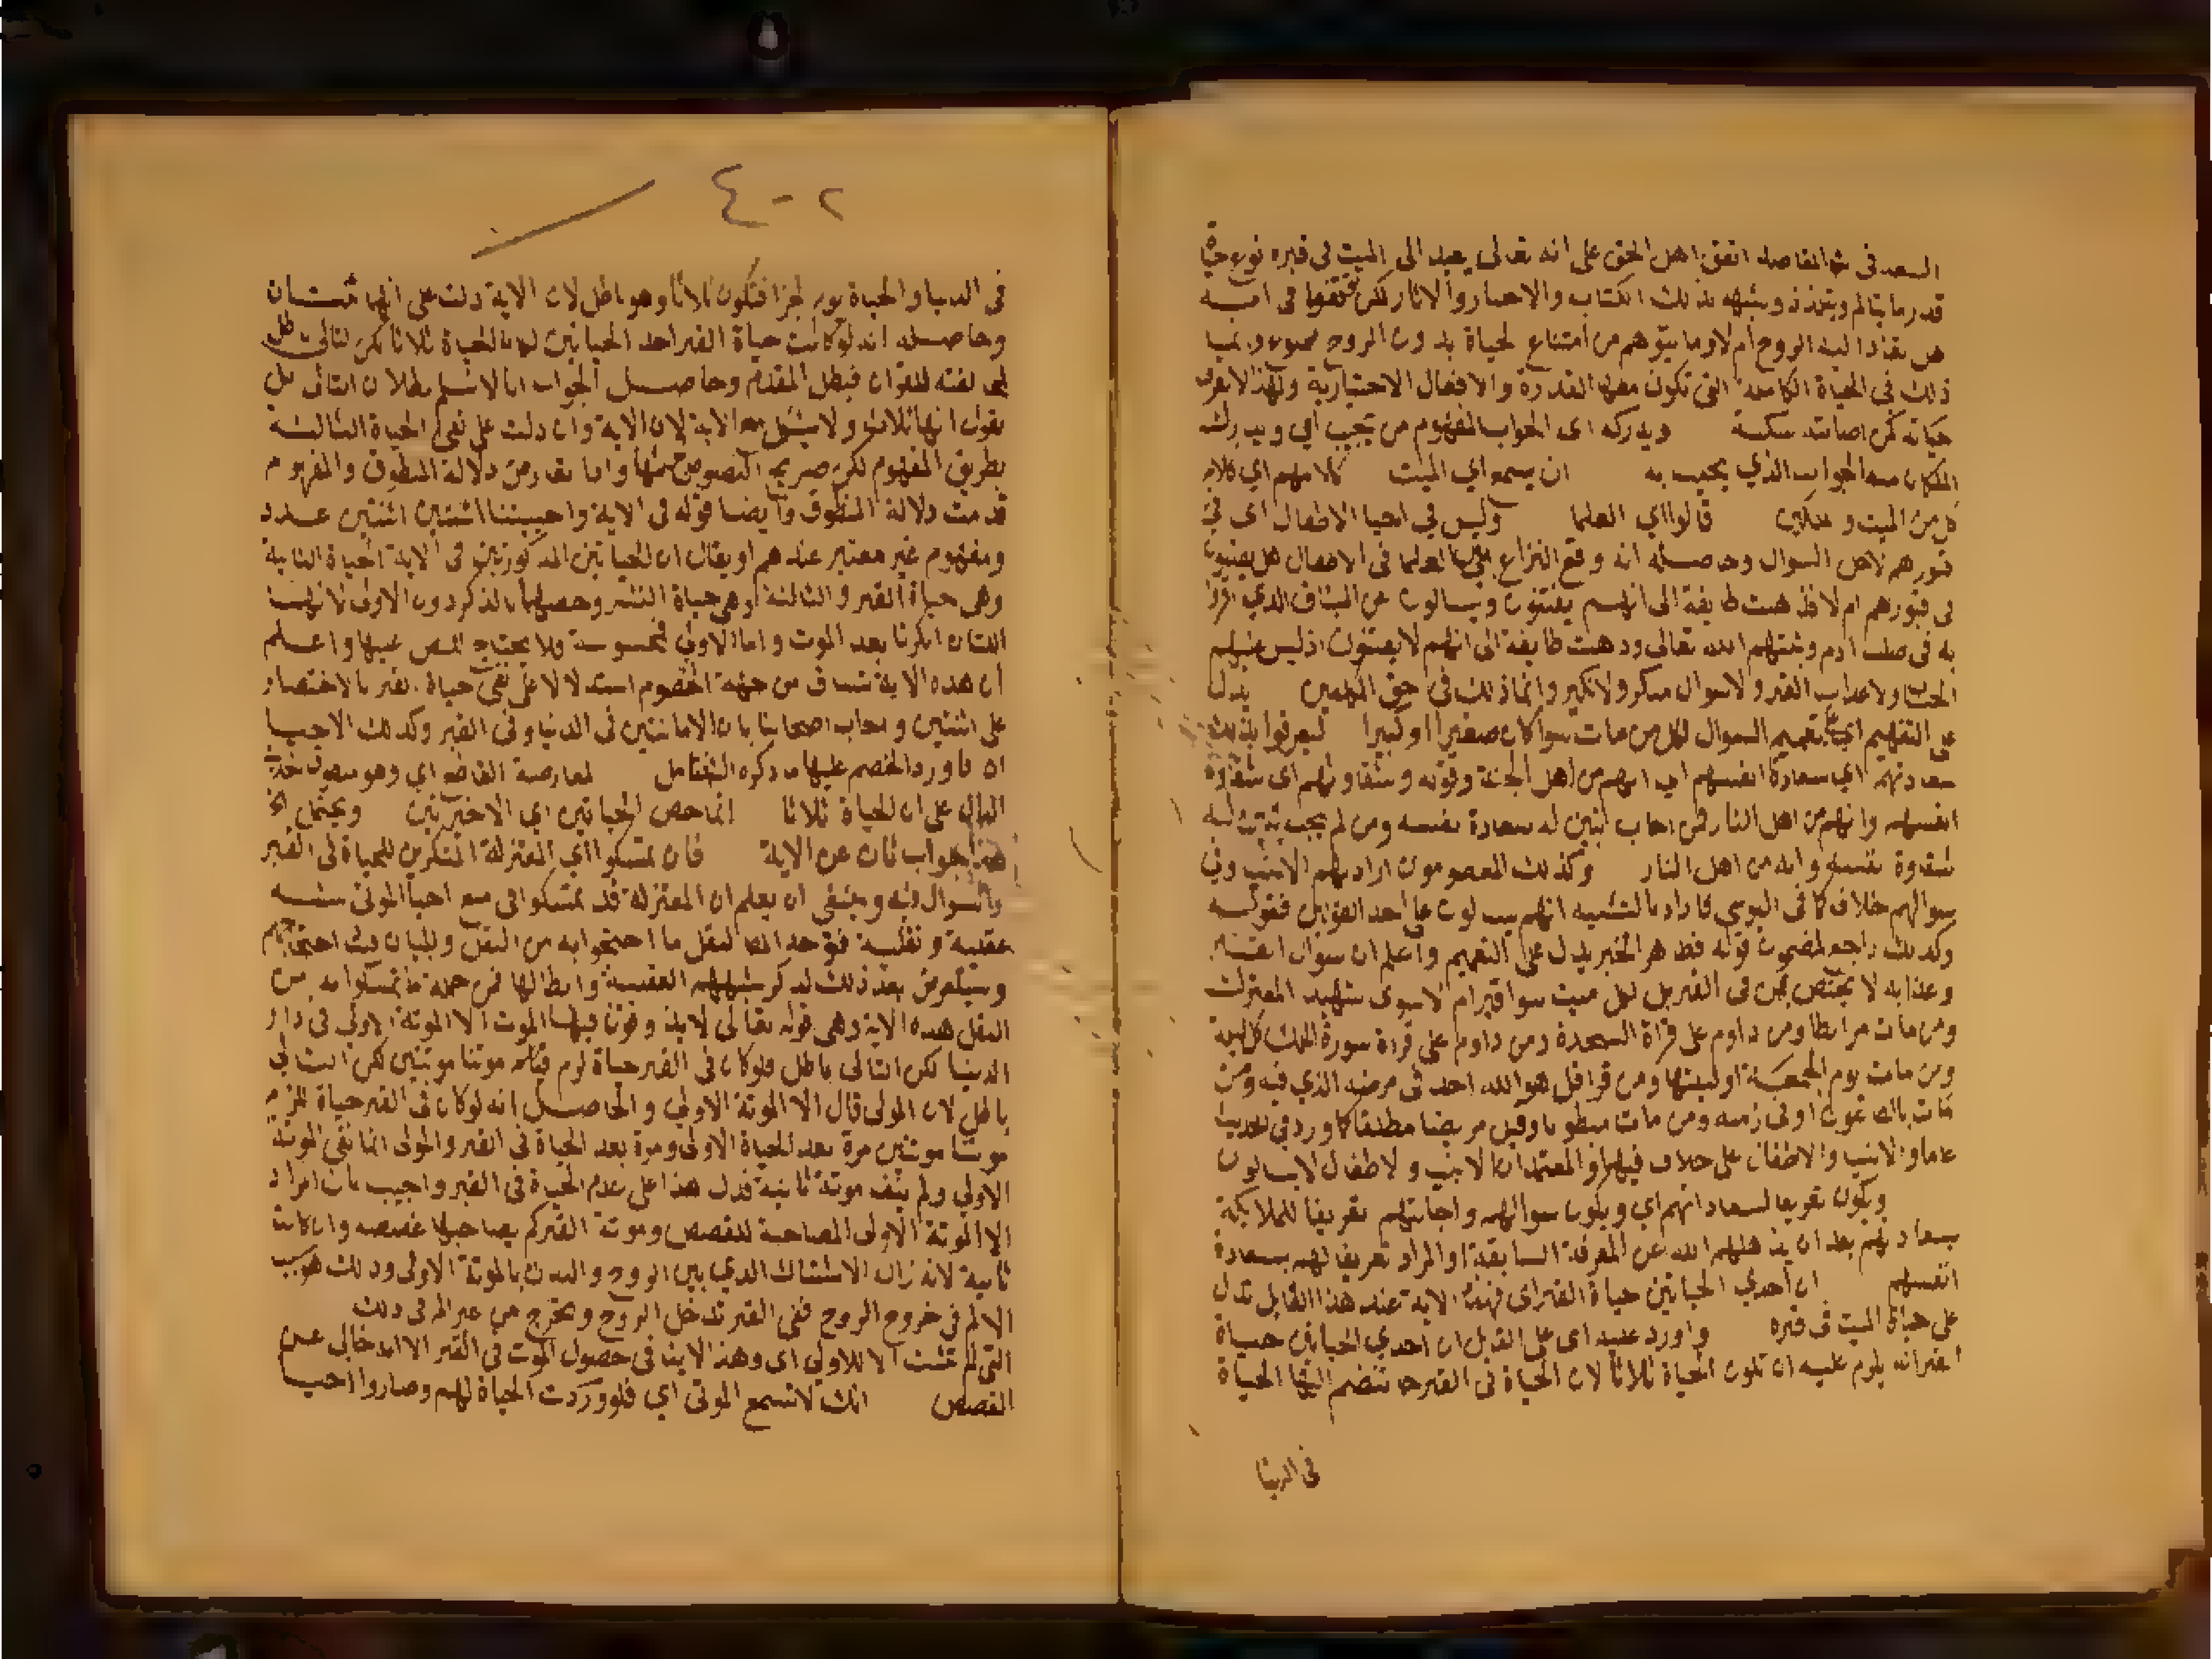 السعد في شرح المقاصد اتفق اهل الحق على انه تعالى يعيد الى الميت في قبره نوع حياة
قدر ما يتالم ويتلذذ ويشهد بذلك الكتاب والاخبار والاثار لكن توقفوا في انه
هل تعاد اليه الروح ام لا وما يتوهم من امتناع الحياة بدون الروح ممنوع وانما
ذلك في الحياة الكاملة التي تكون معها القدرة والافعال الاختيارية ولهذا لا يعرف
حياته كمن اصابته سكتة ويدركه اى الجواب المفهوم من يجيب اي ويدرك
الملكان منه الجواب الذي يجيب به ان يسمع اي الميت كلامهم اي كلام
كل من الميت و قالوا اي العلما وليس في احيا الاطفال اى في
قبورهم لاجل السوال وحاصله انه وقع النزاع بين العلما في الاطفال هل يفتنون
في قبورهم ام لا فذهبت طايفة الى انهم يفتنون ويسالون عن الميثاق الذي اقروا
به في صلب ادم وثبتهم الله تعالى وذهبت طايفة الى انهم لا يفتنون اذ ليس عليهم
ولا عذاب القبر ولا سوال منكر ولا نكير وانما ذلك في حق المكلفين يدل
على التعميم اي تعميم السوال لكل من مات سوا كان صغيرا او كبيرا ليعرفوا بذلك
سعادتهم اي سعادة انفسهم اي انهم من اهل الجنة وقوله وشقاوتهم اى شقاوة
انفسهم وانهم من اهل النار فمن اجاب تبين له سعادة نفسه ومن لم يجب تبينت له
شقاوة نفسه وانه من اهل النار وكذلك المعصومون اراد بهم الانبيا وفي
سوالهم خلاف كما في فاراد بالتشبيه انهم يسالون على احد القولين فقوله
وكذلك راجع لمضمون قوله فظاهر الخبر يدل على التعميم واعلم ان سوال القبر
وعذابه لا يختص بمن في القبر بل لكل ميت سوا قبر ام لا سوى شهيد المعترك
ومن مات مرابطا ومن داوم على قراة السجدة ومن داوم على قراة سورة الملك كل ليلة
ومن مات يوم الجمعة او ليلتها ومن قرا قل هو الله احد في مرضه الذي فيه ومن
مات بالطاعون او في زمنه ومن مات مبطونا وقيل مريضا مطلقا كما ورد في الحديث
عاما والانبيا والاطفال على خلاف فيهم والمعتمد ان الانبيا والاطفال لا يسالون
ويكون تعريفا لسعاداتهم اي ويكون سوالهم واجابتهم تعريفا للملايكة
بسعادتهم بعد ان يذهلهم الله عن المعرفة السابقة او المراد تعريف لهم بسعادة
انفسهم ان احدي الحياتين حياة القبر اى فهذه الاية عند هذا القايل تدل
على حياة الميت في قبره واورد عليه اى على القول ان احدي الحياتين حياة
القبر انه يلزم عليه ان تكون الحياة ثلاثا لان الحياة في القبر ح تنضم اليها الحياة
في الدنيا
٢-٤
في الدنيا والحياة يوم الجزا فتكون ثلاثا وهو باطل لان الاية دلت على انها ثنتان
وحاصله انه لو كانت حياة القبر احد الحياتين لكانت الحياة ثلاثا لكن التالي باطل
لمخالفته للقران فبطل المقدم وحاصل الجواب انا لا نسلم بطلان التالى بل
نقول انها ثلاث ولا يشكل الاية لان الاية وان دلت على نفي الحياة الثالثة
بطريق المفهوم لكن صريح النصوص تثبتها واذا تعارضت دلالة المنطوق والمفهوم
قدمت دلالة المنطوق وايضا قوله في الاية واحييتنا اثنتين اثنتين عدد
ومفهوم غير معتبر عندهم او يقال ان الحياتين المذكورتين في الاية الحياة الثانية
وهي حياة القبر والثالثة وهي حياة النشر وخصهما بالذكر دون الاولى لانهما
اللتان انكرتا بعد الموت واما الاولى فمحسوسة ولا يحتاج للنص عليها واعلم
ان هذه الاية تساق من جهة الخصوم استدلالا على نفي حياة القبر بالاختصار
على اثنتين واجاب اصحابنا بان الاماتتين في الدنيا وفي القبر وكذلك الاحيا
ان فاورد الخصم عليها ما ذكره الشامل لمعارضة القاطع اي وهو منصوص
الدال على ان الحياة ثلاثا انما خص الحياتين اي الاخيرتين ويحتمل الخ
هذا جواب ثان عن الاية فان تمسكوا اي المعتزلة المنكرين للحياة في القبر
والسوال فيه وينبغي ان يعلم ان المعتزلة قد تمسكوا في منع احيا الموتى بشبه
عقلية ونقلية فوجد النقل ما احتجوا به من النقل
وسيتعرض بعد ذلك لذكر شبههم العقلية وابطالها فمن جملة ما تمسكوا به من
النقل هذه الاية وهي قوله تعالى لا يذوقون فيها الموت الا الموتة الاولي في دار
الدنيا لكن التالي باطل فلو كان في القبر حياة لزم موتتا موتتين لكن التالي
باطل لان المولى قال الا الموتة الاولي والحاصل انه لو كان في القبر حياة للزم
موتتا موتتين مرة بعد الحياة الاولى ومرة بعد الحياة في القبر والمولى انما نفى الموتة
الاولي ولم ينف موتة ثانية فدل هذا على عدم الحياة في القبر واجيب بان المراد
الا الموتة الاولى المصاحبة للغصص وموتة القبر لم يصاحبها غصصه وان كانت
ثانية لانه زال الاشتباك الذي بين الروح والبدن بالموتة الاولى وذلك هو سبب
الالم في خروج الروح ففي القبر تدخل الروح وتخرج من غير الم في ذلك
التي لم تثبت الا للاولي اى وهذا لا ينافي حصول الموت في القبر الا انه خالى عن
الغصص انك لا تسمع الموتى اي فلو وردت الحياة لهم وصاروا احيا